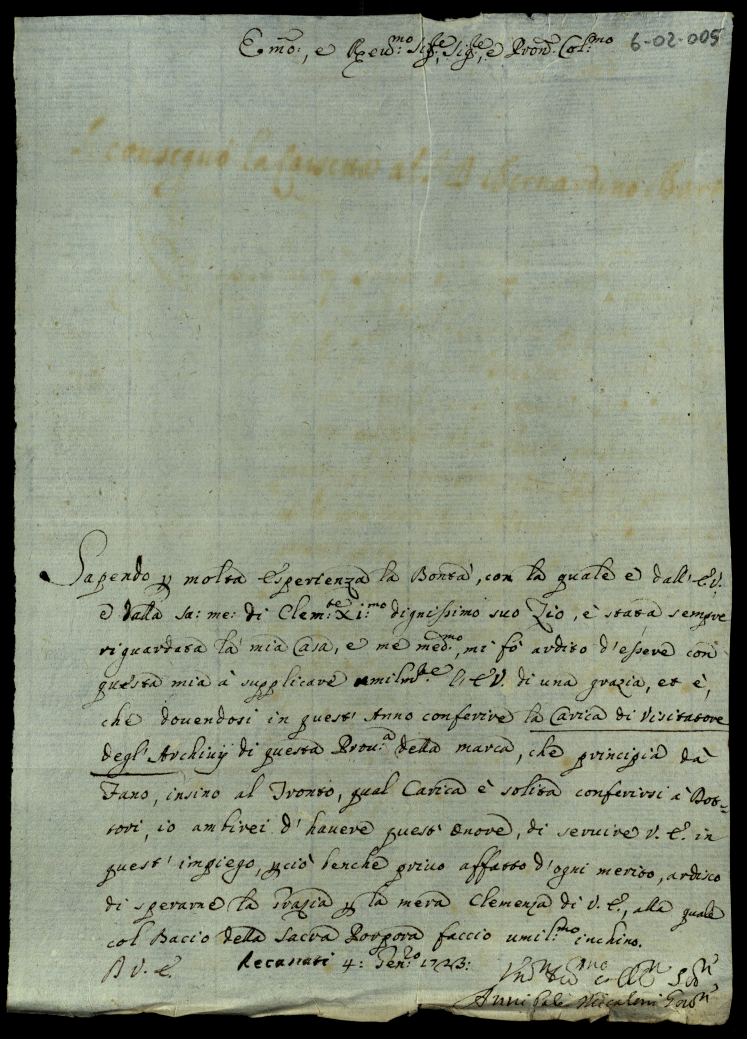 Em̃o:, e Reu:mo Sig:re, Sig:re, e Pron: Col:mo 6-02-005
consegnò la al P Bernardino
Sapendo p molta esperienza la Bontà, con la quale e dall'E.V.
e dalla sa: me: di Clem:te XI:mo dignissimo suo Zio, è stata sempre
riguardata la mia Casa, e me med:mo, mi fò ardito d'essere con
questa mia à supplicare umilm:te l'E.V. di una grazia, et è,
che douendosi in quest'Anno conferire la Carica di Visitatore
degl'Archiuij di questa Prou:a della marca, che principia dà
Fano, insino al Tronto, qual Carica è solita conferirsi à Dot=
tori, io ambirei d'hauere quest'onore, di seruire V.E. in
quest'impiego, p ciò benche priuo affatto d'ogni merito, ardisco
di sperarne la Grazia p la mera Clemenza di V.E., alla quale
col Bacio della Sacra Porpora faccio umil:mo inchino.
D V. E. Recanati 4: Gen:ro 1723:
Annibale